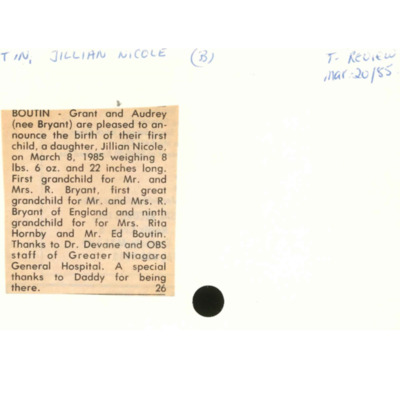 TIN, JILLIAN NICOLE (B) T- REVIEW
Mar. 20/85
BOUTIN - Grant and Audrey
(nee Bryant) are pleased to an-
nounce the birth of their first
child, a daughter, Jillian Nicole,
on March 8, 1985 weighing 8
lbs. 6 oz. and 22 inches long.
First grandchild for Mr. and
Mrs. R. Bryant, first great
grandchild for Mr. and Mrs. R.
Bryant of England and ninth
grandchild for for Mrs. Rita
Hornby and Mr. Ed Boutin.
Thanks to Dr. Devane and OBS
staff of Greater Niagara
General Hospital. A special
thanks to Daddy for being
there. 26